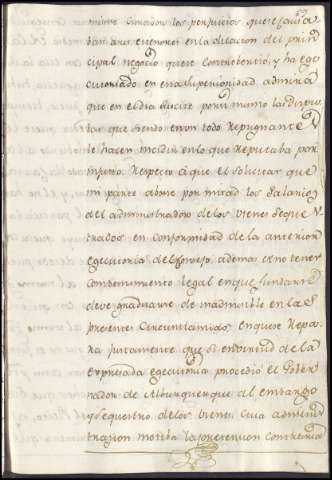 mismo Curador los perjuicios que se causa
ban a su menor en la dilacion del prin
cipal negocio que se controvertio, y ha ege
cutoriado en esta Superioridad, admira
que en el dia suscite por si mismo las disputas
que siendo en un todo repugnante
le hacen incidir en lo que reputaba por
impropio. Respecto à que el solicitar que
mi parte abone por mitad los Salarios
del administrador de los vienes Seques
trados en conformidad de la anterior
egecutoria del Consejo, ademas de no tener
consentimiento legal en que fundarse
deve graduarse de inadmisible en las
presentes Circunstancias en que se repa
ra justamente que si en virtud de la
expresada egecutoria procedio el Gover
nador de Alburquerque al embargo
y sequestro de los vienes, cuia adminis
tracion motiba la pretension contraria